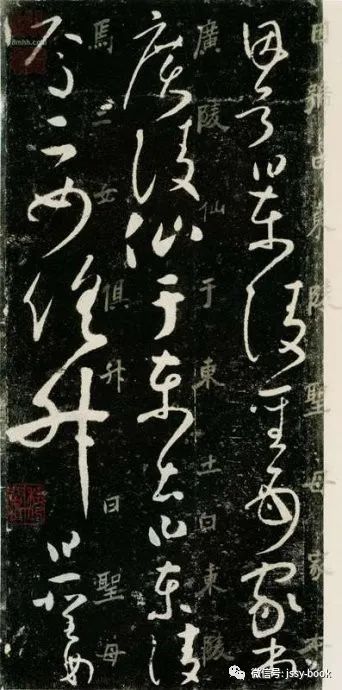 因號曰東陵聖母家本
因號曰東陵聖母家本
廣陵仙于東土曰東陵
廣陵仙于東土曰東陵
焉二女俱升曰聖母
焉二女俱升曰聖母
微信号: jssy-book